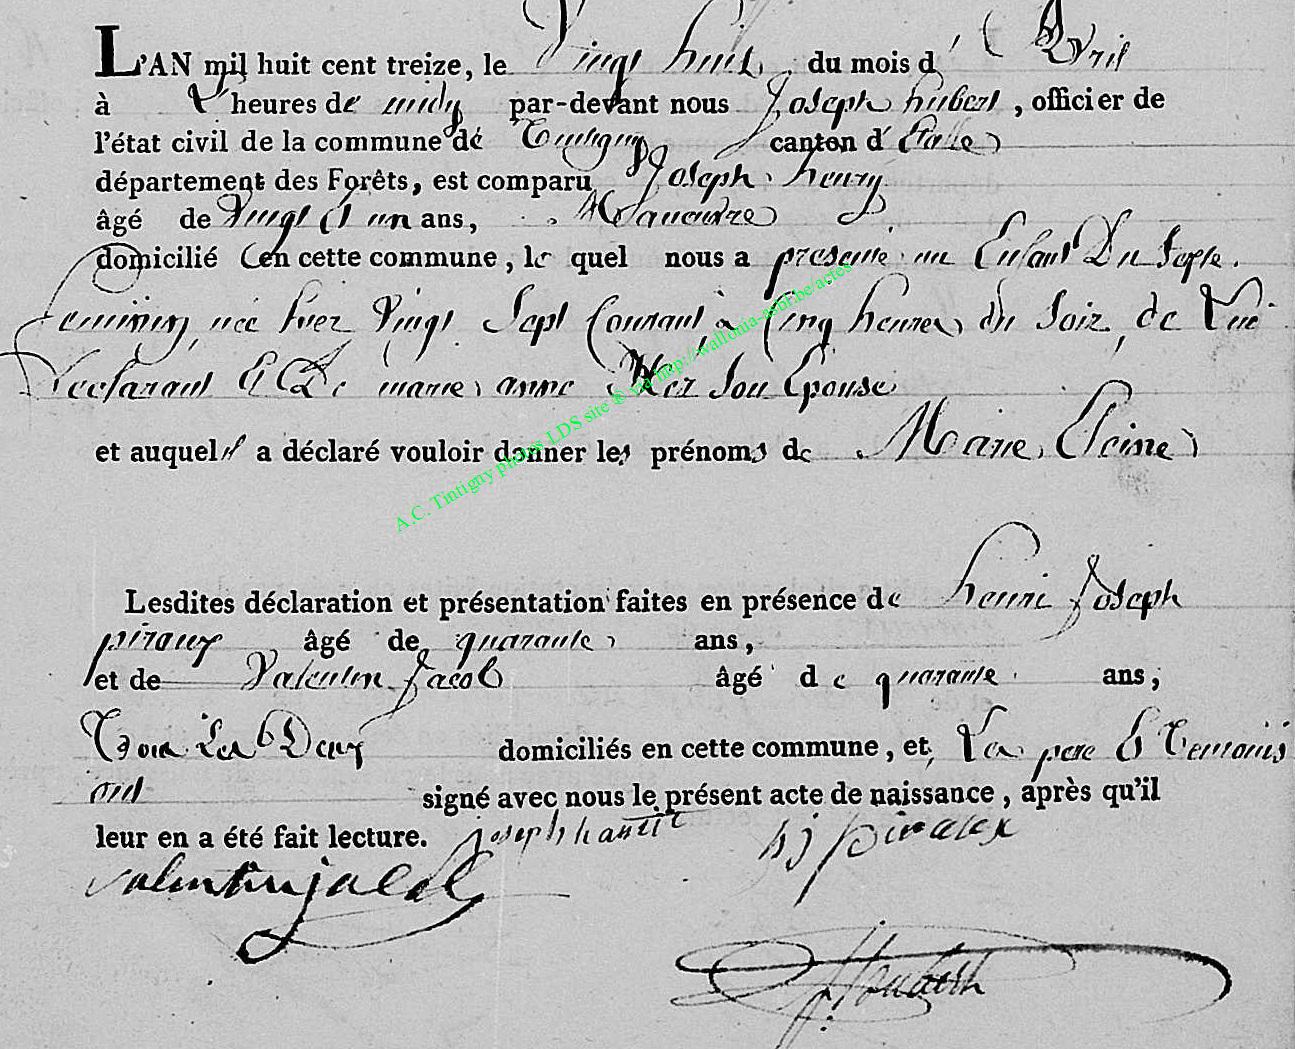 L'AN mil huit cent treize, le Vingt huit du mois d' Avril
à L' heures de midy par-devant nous Joseph hubert, officier de
l'état civil de la commune de Tintigny canton d' Etalle
département des Forêts, est comparu Joseph henry
âgé de Vingt Et un ans, Manouvre
domicilié en cette commune, le quel nous a presenté un Enfant Du Sexe
feminin, née hier Vingt Sept Courant à Cinq heures du Soir, de Lui
Declarant Et De marie anne Son Epouse
et auquel il a déclaré vouloir donner les prénoms de Marie
Lesdites déclaration et présentation faites en présence de henri Joseph
piraux âgé de quarante ans,
et de Valentin Jacob âgé de quarante ans,
Tous Les Deux domiciliés en cette commune, et, Les pere Et Temoins
ont signé avec nous le présent acte de naissance, après qu'il
leur en a été fait lecture. joseph hj piraux
valentin jacob
A.C. Tintigny photos LDS site & via http://wallonia-asbl.be/actes